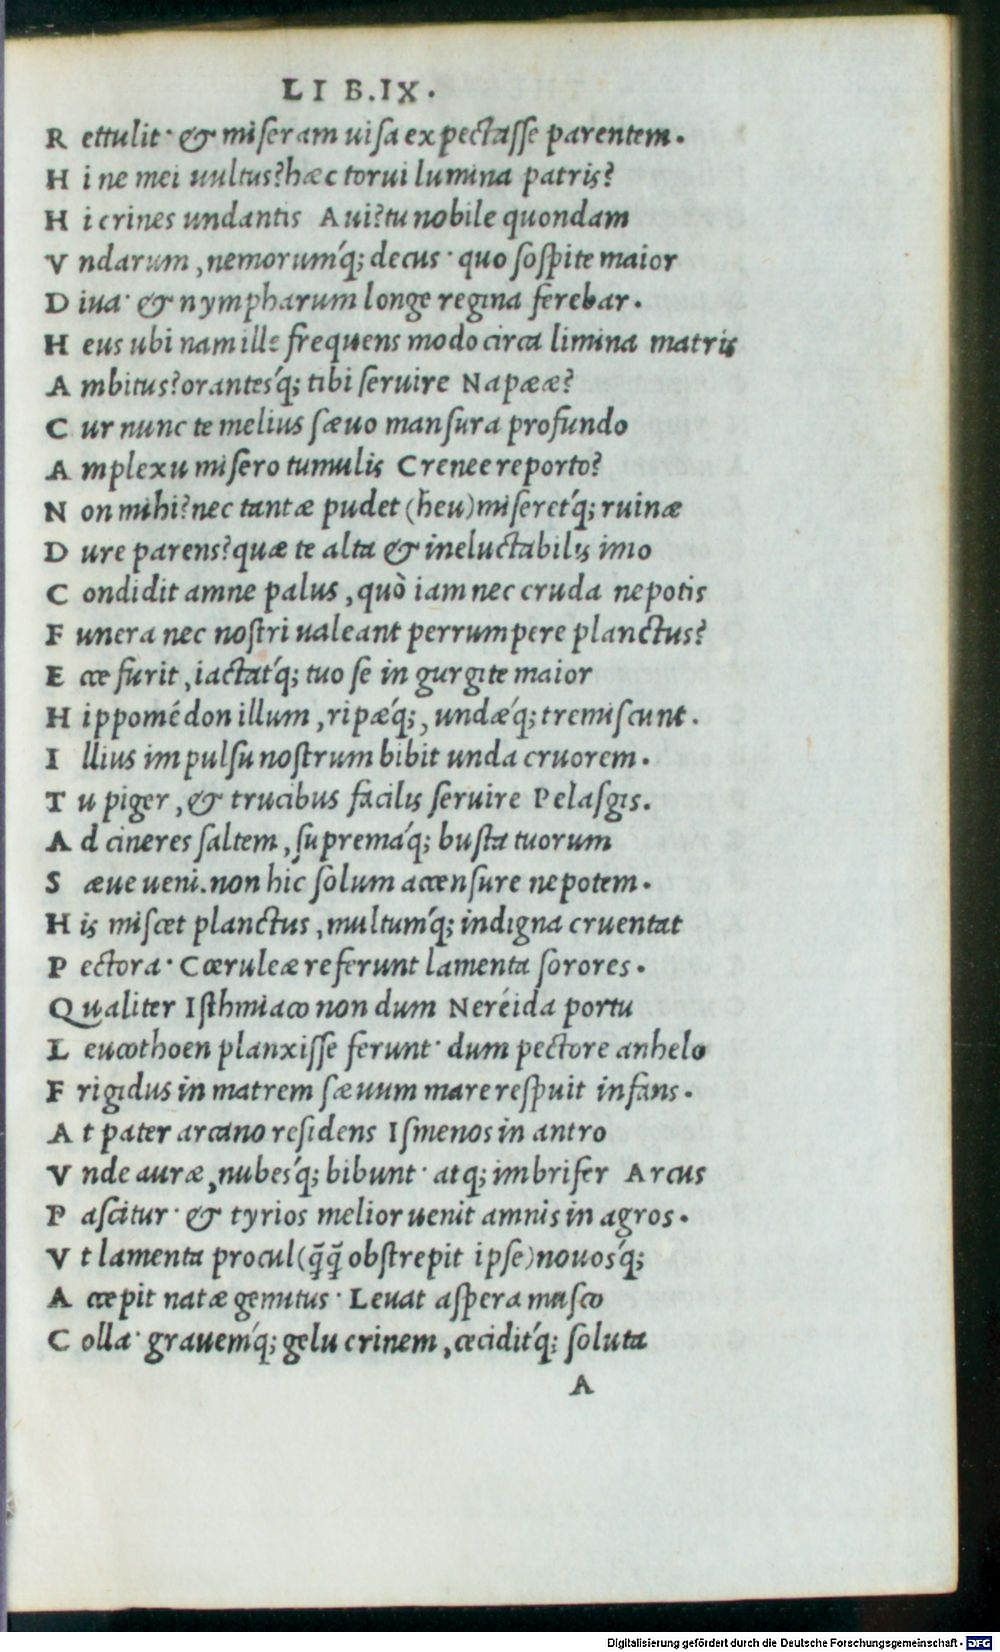 LIB.IX.
R ettulit· & miseram uisa expectasse parentem.
H i ne mei uultus? hæc torui lumina patris?
H i crines undantis Aui? tu nobile quondam
V ndarum, nemorumq́; decus· quo sospite maior
D iua· & nympharum longe regina ferebar.
H eus ubi nam ille frequens modo circa limina matris
A mbitus? orantesq́; tibi seruire Napææ?
C ur nunc te melius sæuo mansura profundo
A mplexu misero tumulis Crenee reporto?
N on mihi? nec tantæ pudet (heu) miseretq́; ruinæ
D ure parens? quæ te alta & ineluctabilis imo
C ondidit amne palus, quò iam nec cruda nepotis
F unera nec nostri ualeant perrumpere planctus?
E cce furit, iactatq́; tuo se in gurgite maior
H ippomédon illum, ripæq́;, undæq́; tremiscunt.
I llius impulsu nostrum bibit unda cruorem.
T u piger, & trucibus facilis seruire Pelasgis.
A d cineres saltem, supremáq; busta tuorum
S æue ueni. non hic solum accensure nepotem.
H is miscet planctus, multumq́; indigna cruentat
P ectora· Cœruleæ referunt lamenta sorores.
Qualiter Isthmiaco non dum Neréida portu
L eucothoen planxisse ferunt· dum pectore anhelo
F rigidus in matrem sæuum mare respuit infans.
A t pater arcano residens Ismenos in antro
V nde auræ, nubesq́; bibunt· atq; imbrifer Arcus
P ascitur· & tyrios melior uenit amnis in agros.
V t lamenta procul (q̃q̃ obstrepit ipse) nouosq́;
A ccepit natæ gemitus· Leuat aspera musco
C olla· grauemq́; gelu crinem, ceciditq́; soluta
A
Digitalisierung gefördert durch die Deutsche Forschungsgemeinschaft - DFG